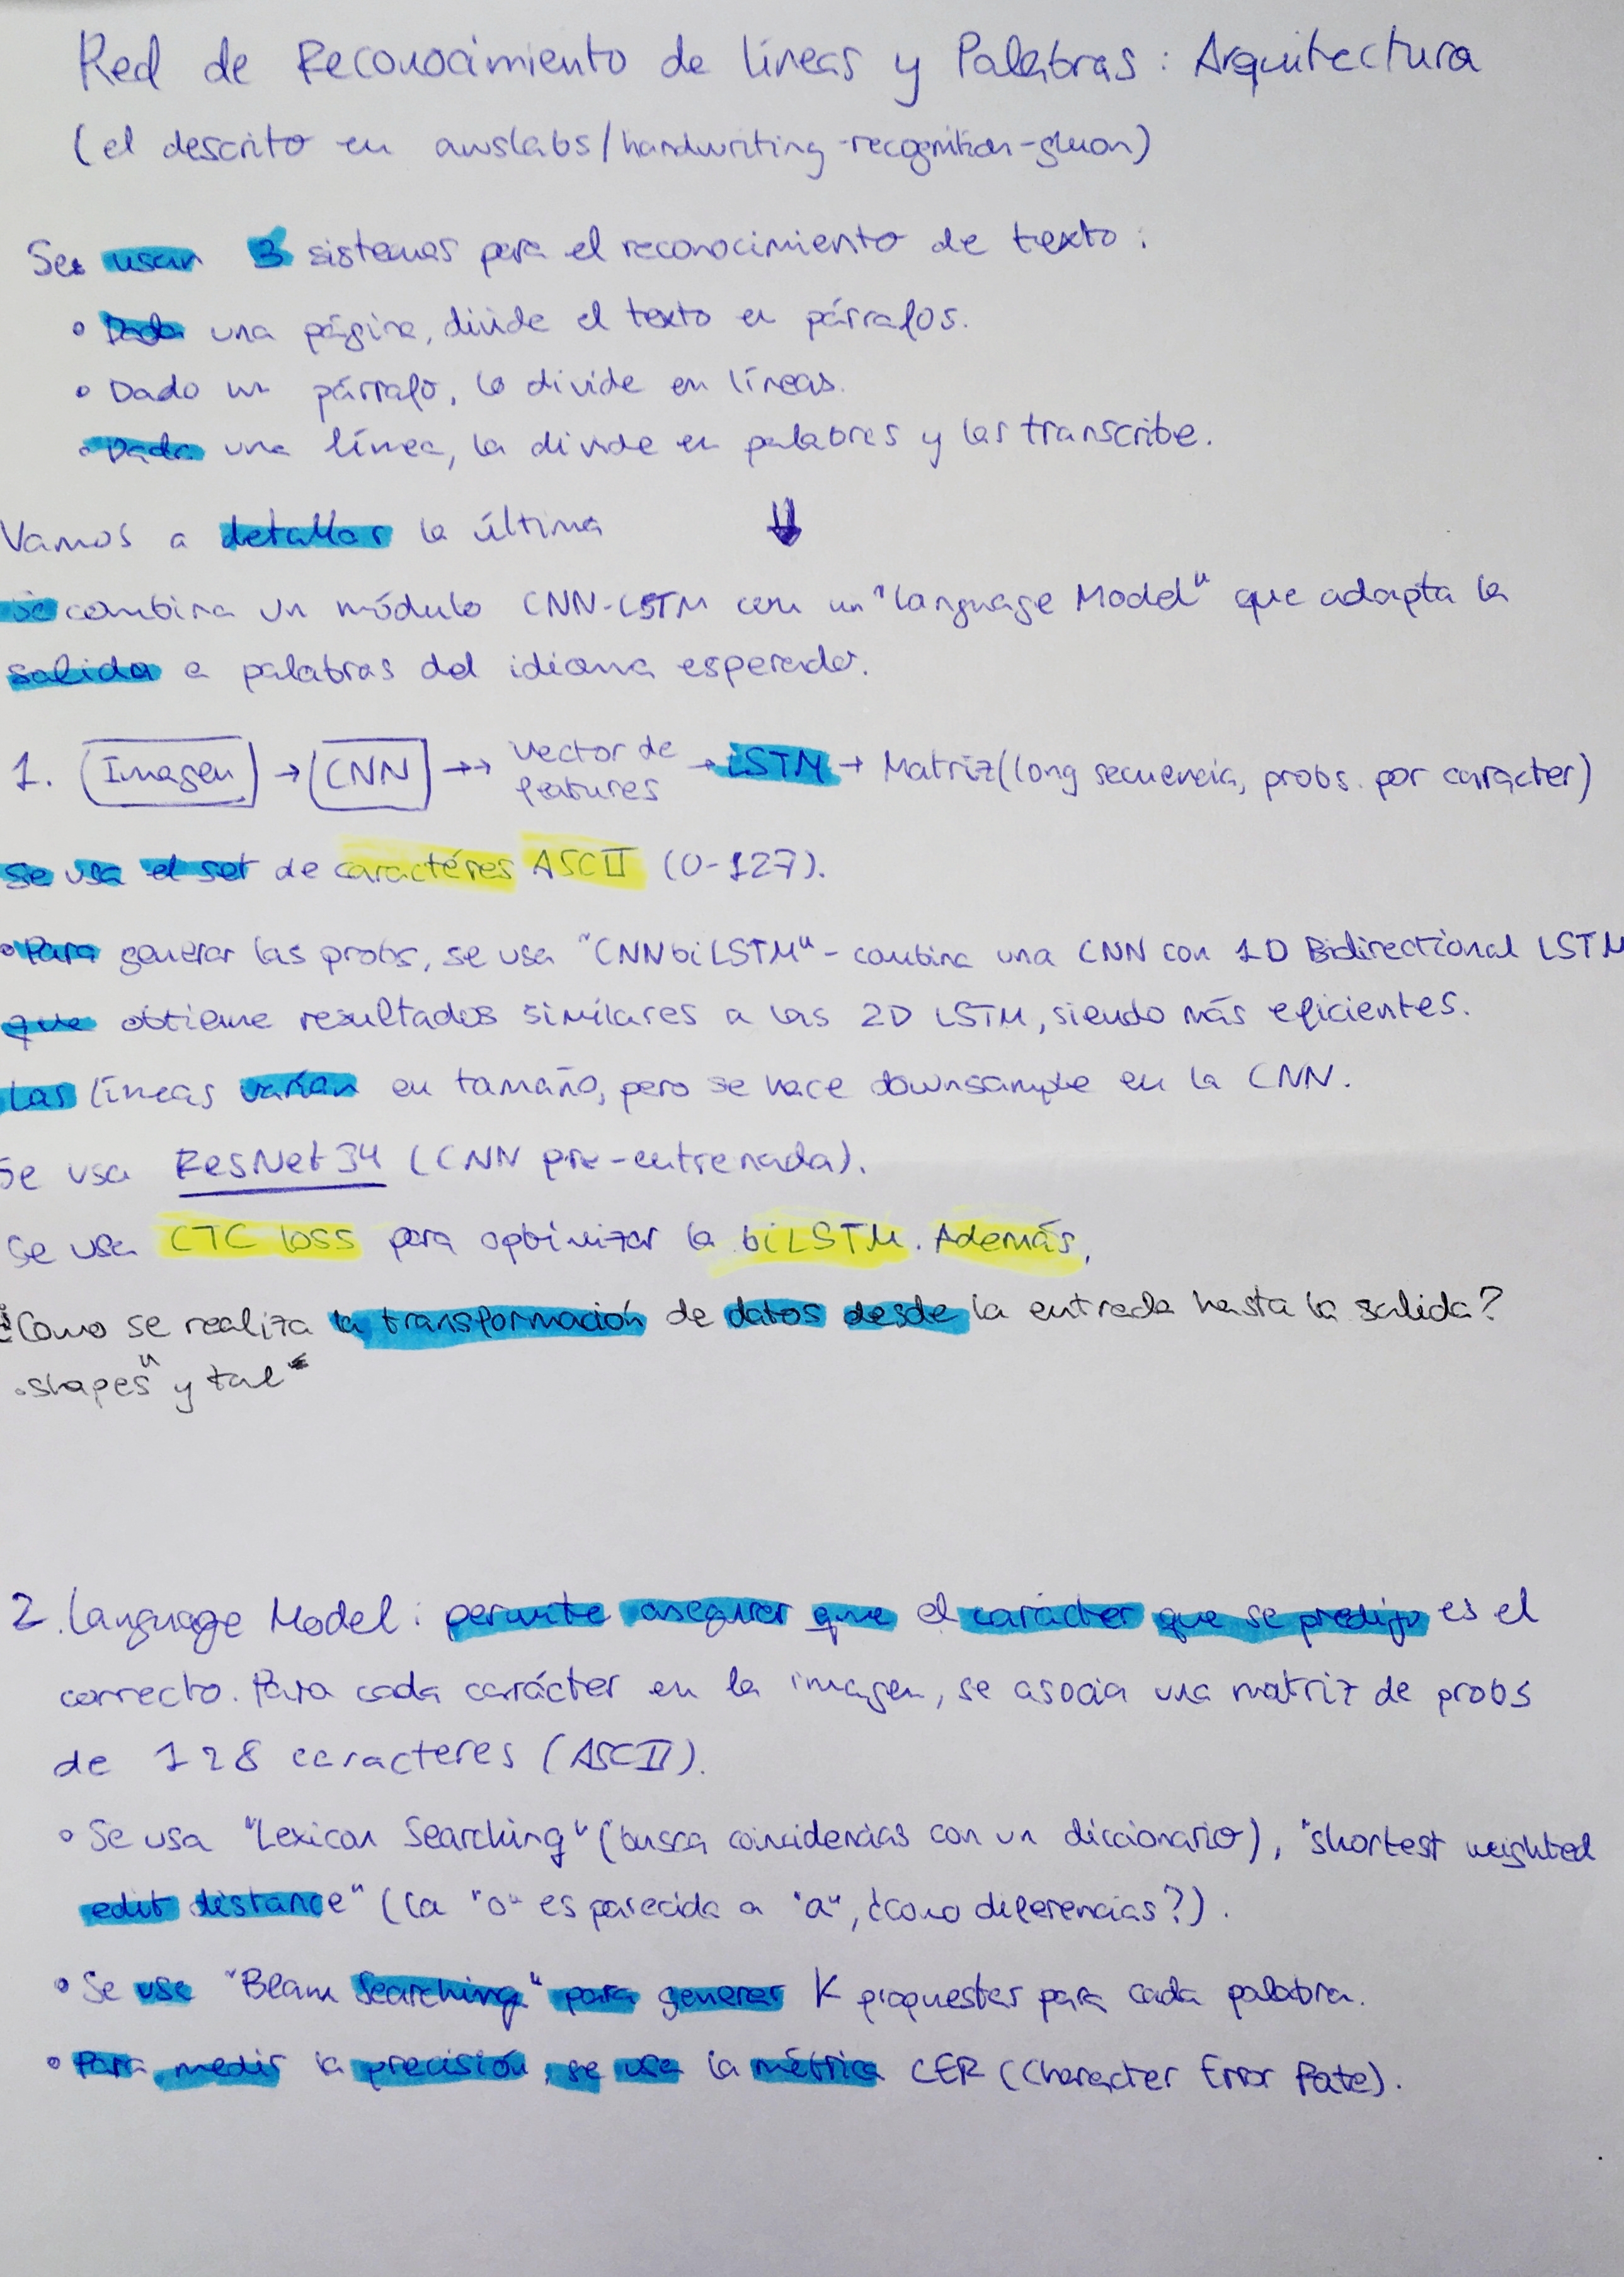 Red de Reconocimiento de líneas y Palabras: Arquitectura
(el descrito en awslabs/handwriting-recognition-gluon)
Se usan 3 sistemas para el reconocimiento de texto:
• Dada una página, divide el texto en párrafos.
• Dado un párrafo, lo divide en líneas.
• Dada una línea, la divide en palabras y las transcribe.
Vamos a detallar la última ⇓
Se combina un módulo CNN-LSTM con un "language Model" que adapta la
salida a palabras del idioma esperado.
1. Imagen → CNN →→ vector de features → LSTM → Matriz(long secuencia, probs. por carácter)
Se usa el set de caractéres ASCII (0-127).
• Para generar las probs, se usa "CNNbiLSTM" - combina una CNN con 1D Bidirectional LSTM
que obtiene resultados similares a las 2D LSTM, siendo más eficientes.
Las líneas varían en tamaño, pero se hace downsample en la CNN.
Se usa ResNet34 (CNN pre-entrenada).
Se usa CTC loss para optimizar la biLSTM. Además,
¿Como se realiza la transformación de datos desde la entrada hasta la salida?
"shapes" y tal
2. Language Model: permite asegurar que el carácter que se predijo es el
correcto. Para cada carácter en la imagen, se asocia una matriz de probs
de 128 caracteres (ASCII).
• Se usa "Lexicon Searching" (busca coincidencias con un diccionario), "shortest weighted
edit distance" (la "o" es parecida a "a", ¿como diferencias?).
• Se usa "Beam Searching" para generar K propuestas para cada palabra.
• Para medir la precisión, se usa la métrica CER (Character Error Rate).